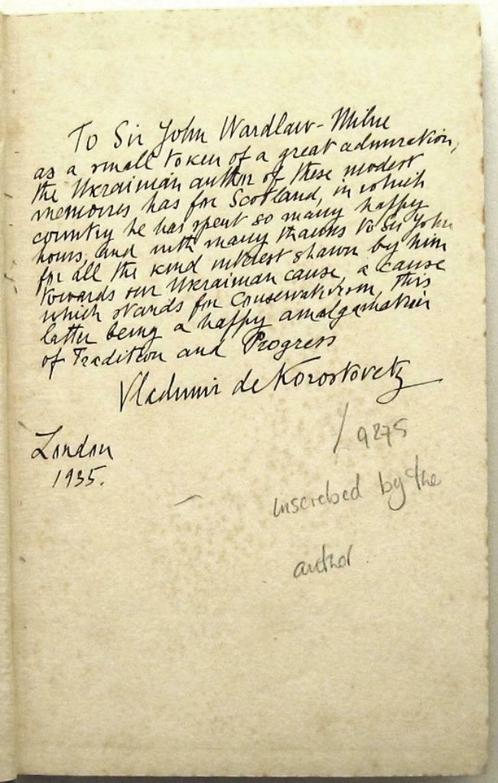 To Sir John Wardlaw-Milne
as a small token of a great admiration,
the Ukrainian author of these modest
memoires has for Scotland, in which
country he has spent so many happy
hours, and with many thanks to Sir John
for all the kind interest shown by him
towards our Ukrainian cause, a cause
which stands for Conservatism, this
latter being a happy amalgamation
of Tradition and Progress
Vladimir de Korostovetz
London
1935.
/ 9275
inscribed by the
author